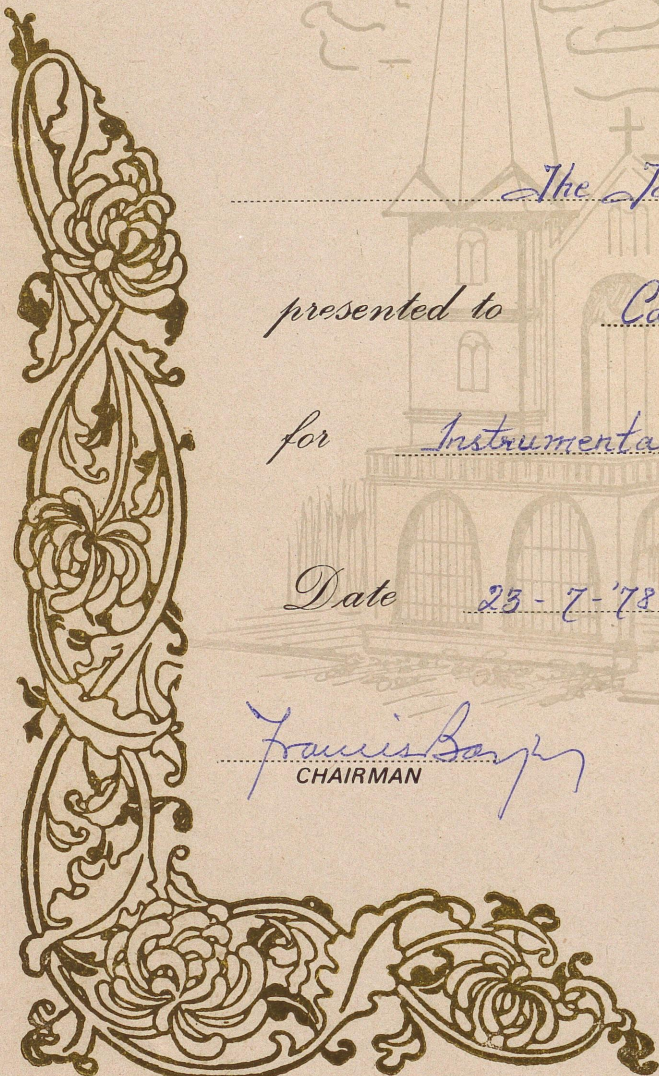 The
presented to
for Instrumenta
Date 23-7-'78
Francis
CHAIRMAN